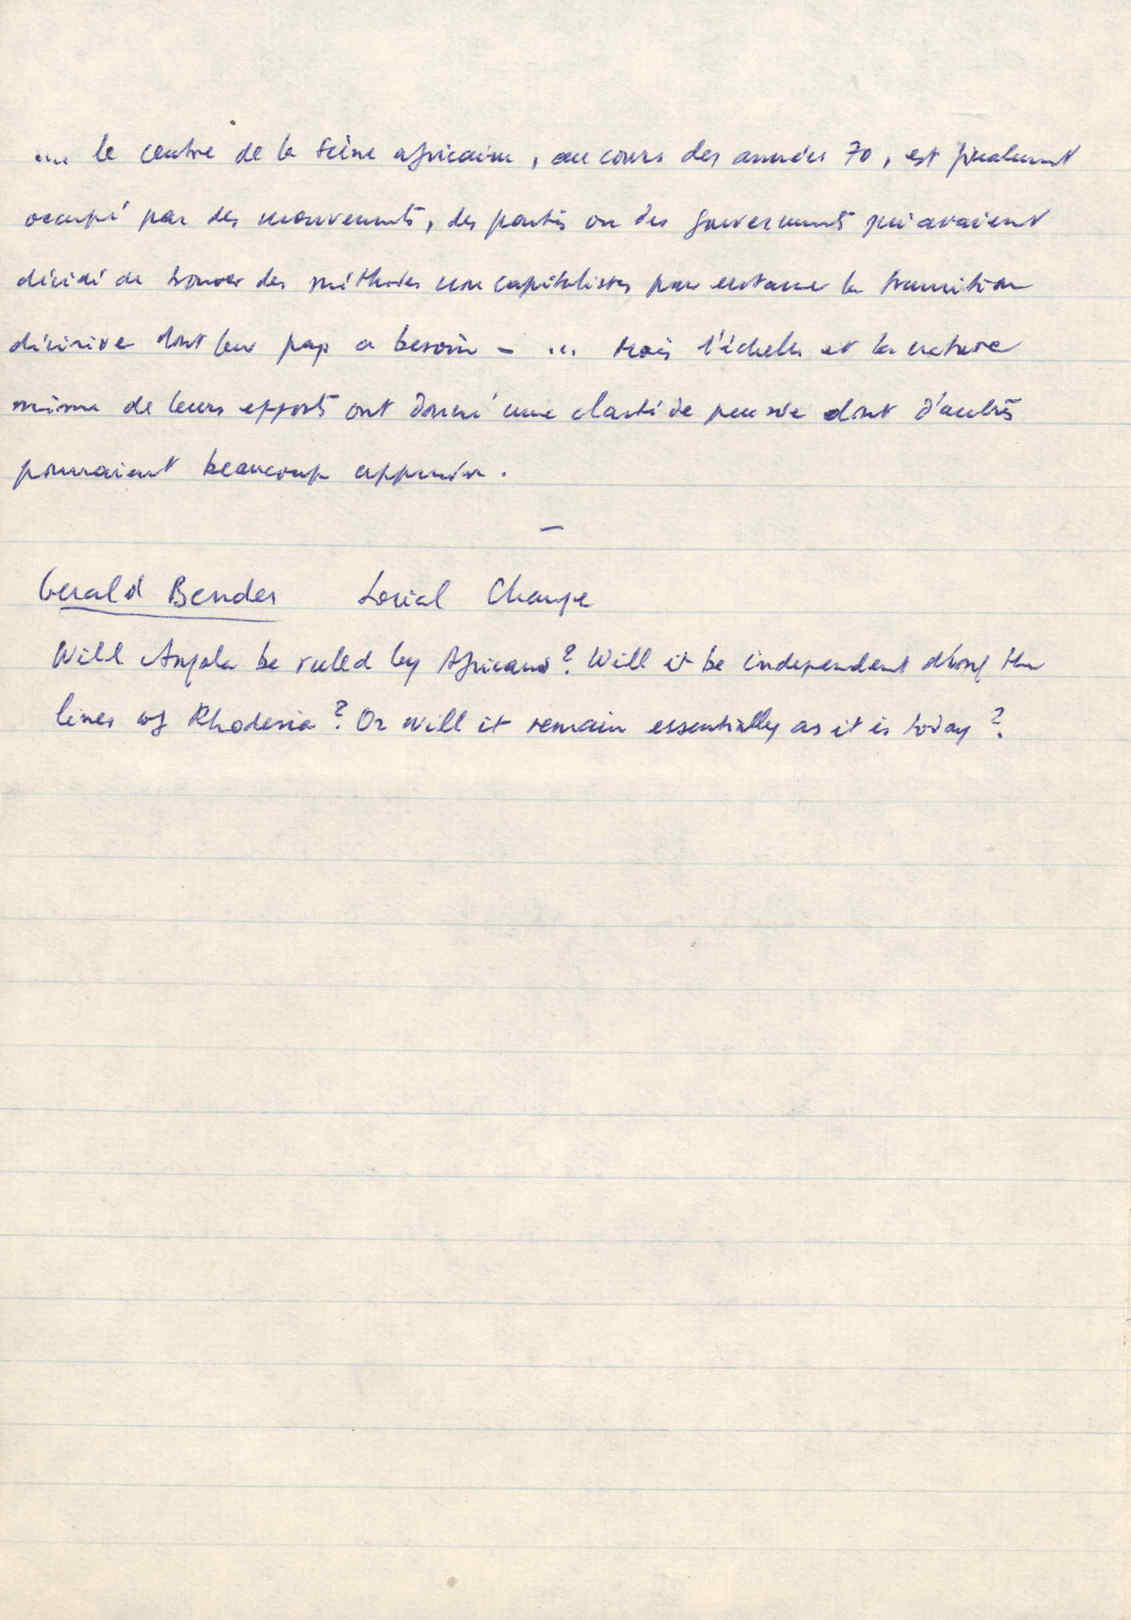 ... le centre de la scène africaine, au cours des années 70, est finalement
occupé par des mouvements, des partis ou des gouvernements qui avaient
décidé de trouver des méthodes non capitalistes pour entamer la transition
décisive dont leur pays a besoin - ... Mais l'échelle et la nature
même de leurs efforts ont donné une clarté de pensée dont d'autres
pourraient beaucoup apprendre.
—
Gerald Bender Social Change
Will Angola be ruled by Africans? Will it be independent along the
lines of Rhodesia? Or will it remain essentially as it is today?